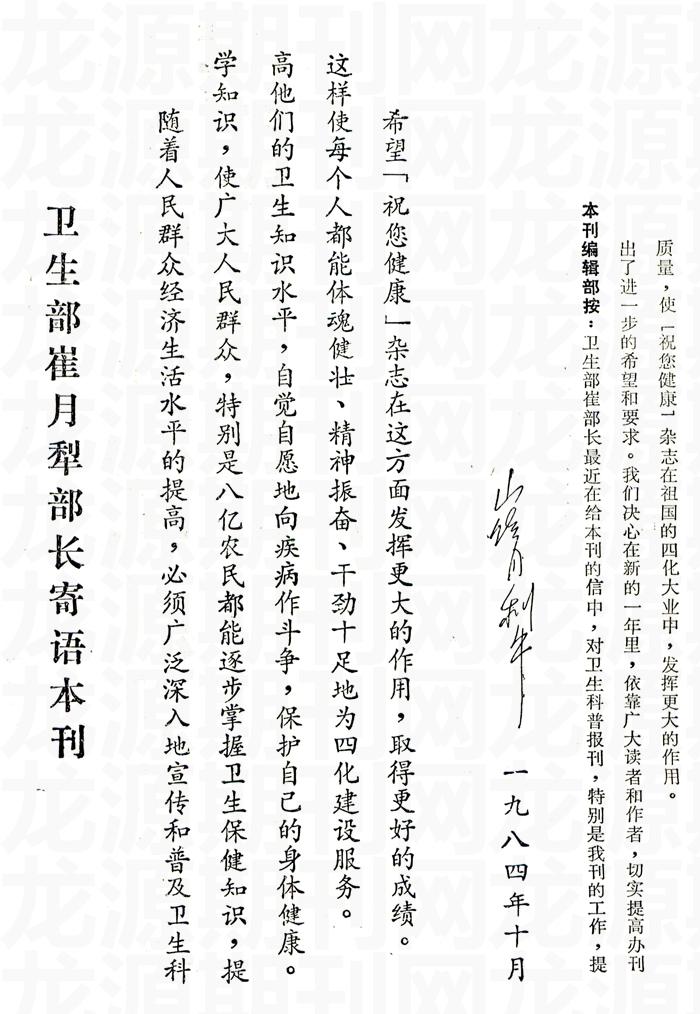 卫生部崔月犁部长寄语本刊
随着人民群众经济生活水平的提高，必须广泛深入地宣传和普及卫生科
学知识，使广大人民群众，特别是八亿农民都能逐步掌握卫生保健知识，提
高他们的卫生知识水平，自觉自愿地向疾病作斗争，保护自己的身体健康。
这样使每个人都能体魂健壮、精神振奋、干劲十足地为四化建设服务。
希望「祝您健康」杂志在这方面发挥更大的作用，取得更好的成绩。
崔月犁
一九八四年十月
本刊编辑部按：卫生部崔部长最近在给本刊的信中，对卫生科普报刊，特别是我刊的工作，提
出了进一步的希望和要求。我们决心在新的一年里，依靠广大读者和作者，切实提高办刊
质量，使「祝您健康」杂志在祖国的四化大业中，发挥更大的作用。
龙源期刊网